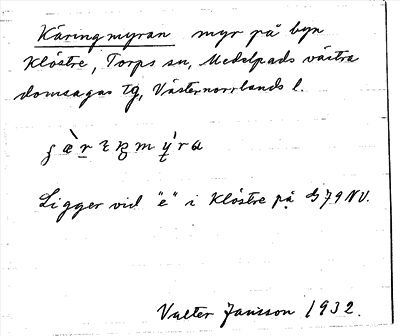 Käringmyran myr på byn
Klöstre, Torps sn, Medelpads västra
domsagas tg, Västernorrlands l.
Ligger vid "e" i Klöstre på G79NV.
Valter Jansson 1932.